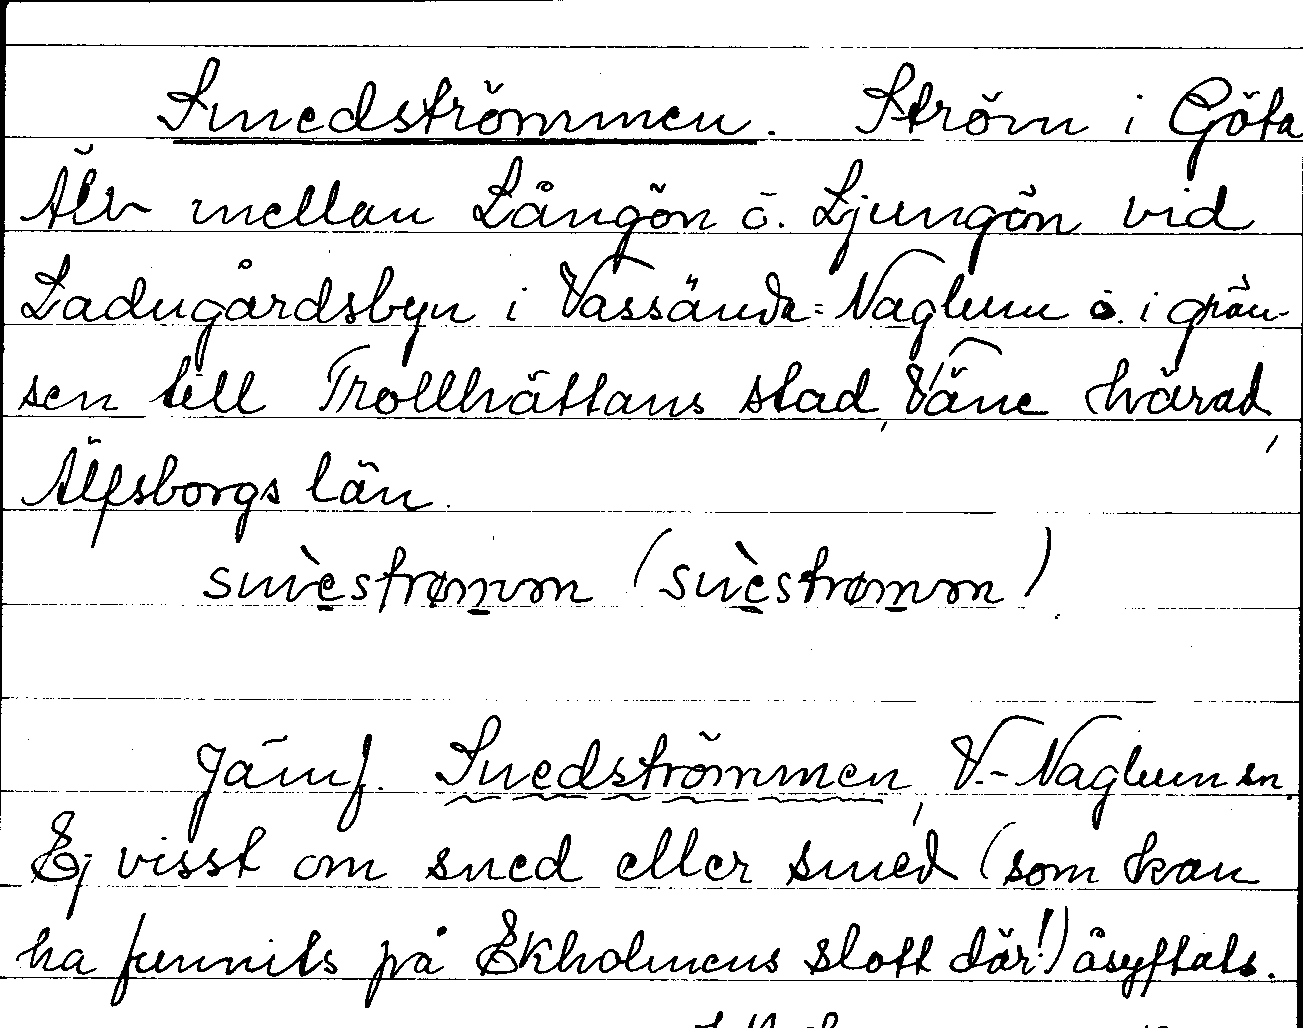 Smedströmmen. Ström i Göta
Älv mellan Långön o. Ljungön vid
Ladugårdsbyn i Vassända-Naglum o. i grän-
sen till Trollhättans stad, Väne härad,
Älfsborgs län.
smèstrømmn (snèstrømmn).
Jämf. Snedströmmen, V.-Naglum sn.
Ej visst om sned eller smed (som kan
ha funnits på Ekholmens slott där!) åsyftats.